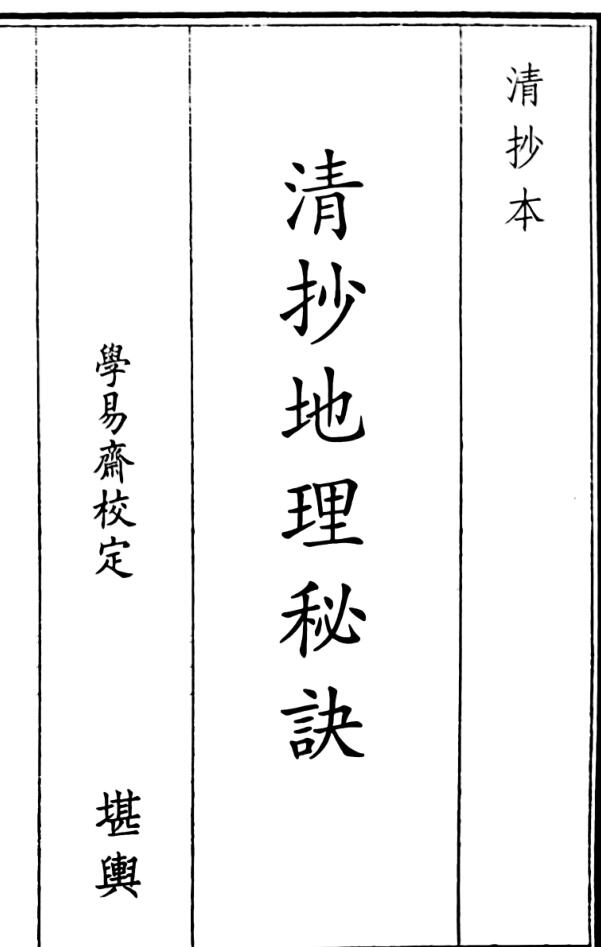 清抄本
清抄地理秘訣
學易齋校定
堪輿